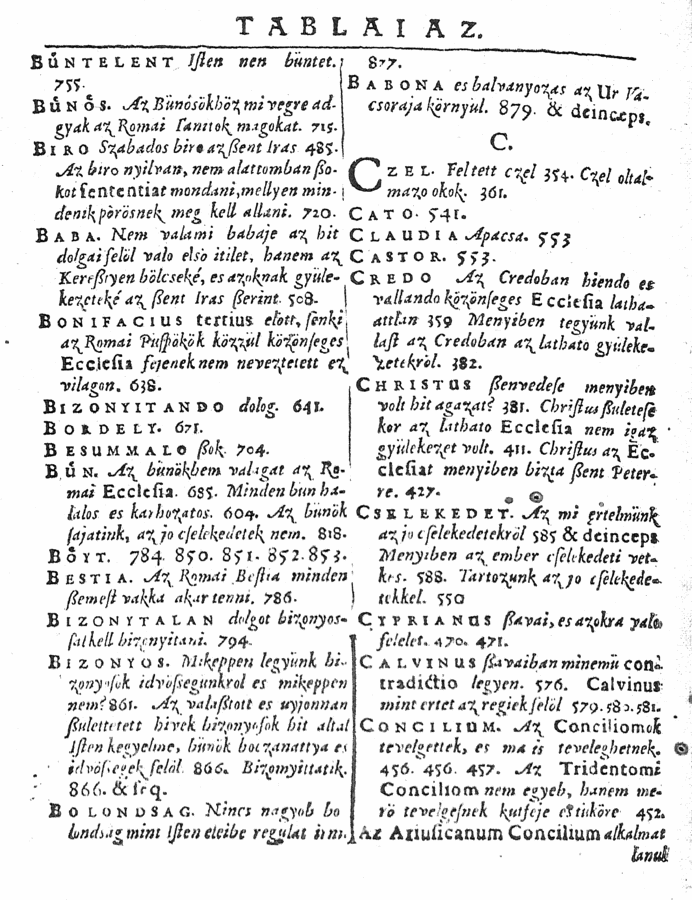 TABLAI AZ.
BŰNTELENT Iſten nen büntet.
755.
BŰNŐS. Az Bűnősökhőz mi vegre ad-
gyak az Romai Tanitok magokat. 715.
BIRO Szabados biro az ßent Iras 485.
Az biro nyilvan, nem alattomban ßo-
kot ſententiat mondani, mellyen min-
denik pőrősnek meg kell allani. 720.
BABA. Nem valami babaje az hit
dolgai felől valo elso itilet, hanem az
Kereßtyen bőlcseké, es azoknak gyüle-
kezeteké az ßent Iras ßerint. 508.
BONIFACIUS tertius elott, ſenki
az Romai Püſpőkők kőzzül kőzőnſeges
Eccleſia fejenek nem neveztetett ez
vilagon. 638.
BIZONYITANDO dolog. 641.
BORDELY. 671.
BESUMMALO ßok. 704.
BŰN. Az bűnőkbem valagat az Ro-
mai Eccleſia. 685. Minden bun ha-
lalos es karhozatos. 604. Az bűnők
ſajatink, az jo cſelekedetek nem. 818.
BŐYT. 784. 850. 851. 852. 853.
BESTIA. Az Romai Beſtia minden
ßemeſt vakka akar tenni. 786.
BIZONYTALAN dolgot bizonyos-
ſal kell bizonyitani. 794.
BIZONYOS. Mikeppen legyünk bi-
zonyoſok idvőſsegünkrol es mikeppen
nem? 861. Az valaßtott es uyjonnan
ßulettetett hivek bizonyoſok hit altal
Iſten kegyelme, bűnők boczanattya es
idvőſsegek felől. 866. Bizomyittatik.
866. & ſeq.
BOLONDSAG. Nincs nagyob bo
londsag mint Iſten eleibe regulat irni.
877.
BABONA es balvanyozas az Ur Va-
csoraja kőrnyul. 879. & deinceps.
C.
CZEL. Feltett czel 354. Czel oltal-
mazo okok. 361.
CATO. 541.
CLAUDIA Apacsa. 553
CASTOR. 553.
CREDO Az Credoban hiendo es
vallando kőzőnſeges Eccleſia latha-
attlan 359 Menyiben tegyünk val-
laſt az Credoban az lathato gyüleke-
zetekről. 382.
CHRISTUS ßenvedeſe menyiben
volt hit agazat? 381. Chriſtus ßuleteſe
kor az lathato Eccleſia nem igaz
gyülekezet volt. 411. Chriſtus az Ec-
cleſiat menyiben bizta ßent Peter-
re. 427.
CSELEKEDET. Az mi ertelmünk
az jo cſelekedetekről 585 & deinceps
Menyiben az ember cſelekedeti vet-
kes. 588. Tartozunk az jo cſelekede-
tekkel. 550
CYPRIANUS ßavai, es azokra valo
felelet. 470. 471.
CALVINUS ßavaiban minemü con-
tradictio legyen. 576. Calvinus
mint ertet az regiek felől 579. 580. 581.
CONCILIUM. Az Conciliomok
tevelgettek, es ma is teveleghetnek.
456. 456. 457. Az Tridentomi
Conciliom nem egyeb, hanem me-
rő tevelgeſnek kutfeje es tükőre 452.
Az Ariuſicanum Concilium alkalmat
lanul